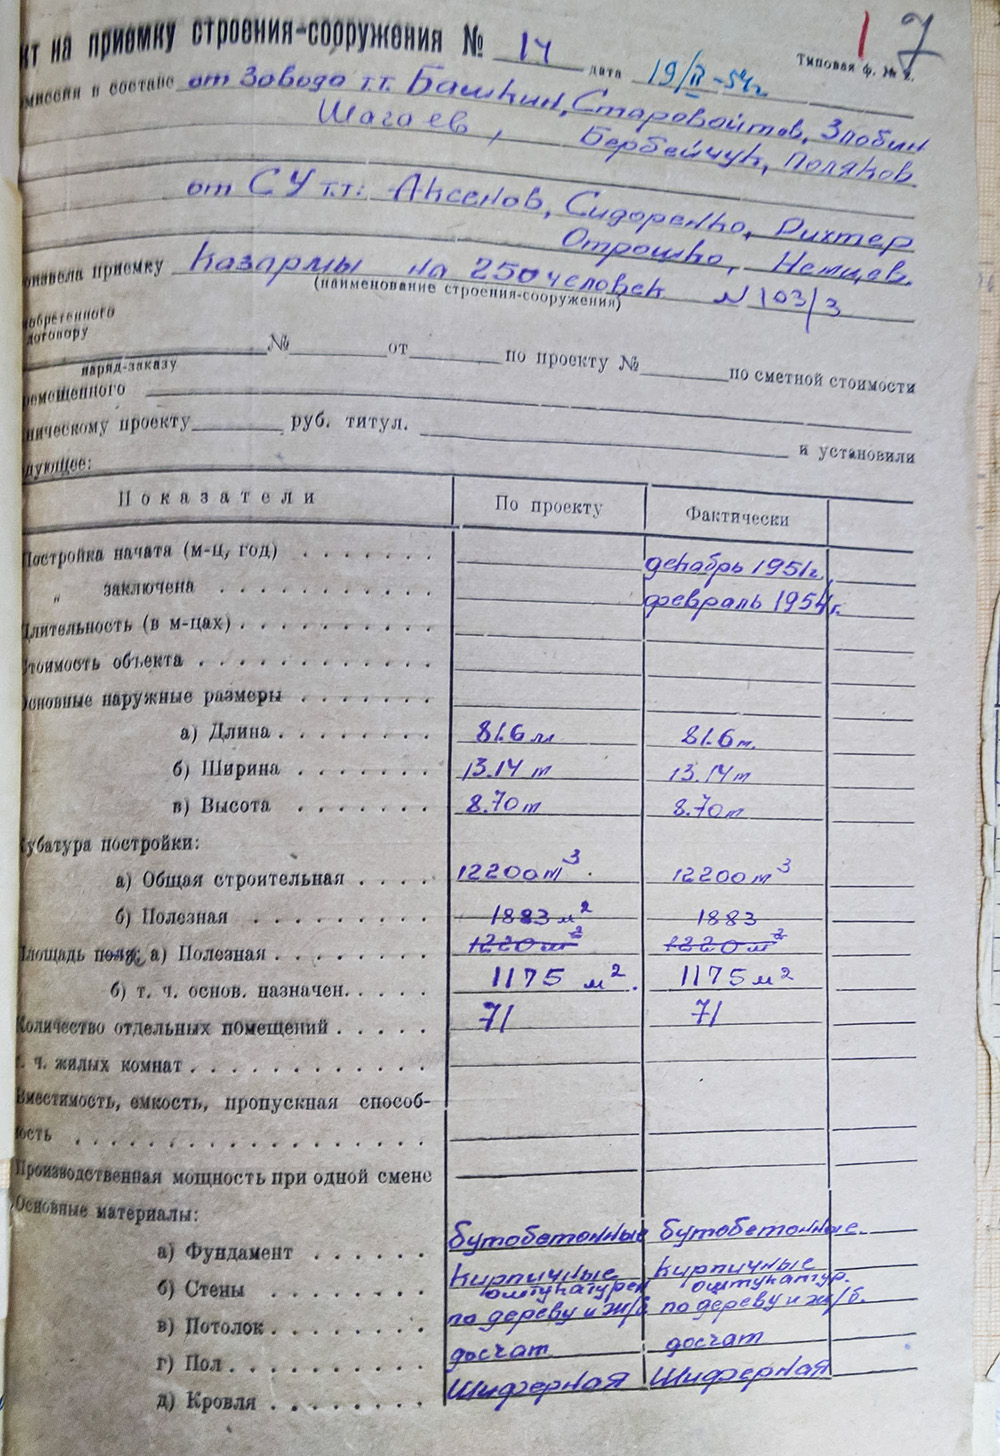 кт на приемку строения-сооружения № 14 дата 19/II-54г.
1 7
Типовая ф. №
миссия в составе от Завода т.т. Башкин, Старовойтов, Злобин
Шагаев, Бербейчук, Поляков.
от СУ т.т: Аксенов, Сидоренко, Рихтер
Отрошко, Немцев.
оизвела приемку Казармы на 250 человек N 103/3
(наименование строения-сооружения)
обретенного
договору
№ от по проекту № по сметной стоимости
наряд-заказу
ремещенного
ническому проекту руб. титул. и установили
дующее:
Показатели По проекту Фактически
Постройка начата (м-ц, год) декабрь 1951г.
„ заключена февраль 1954г.
Длительность (в м-цах)
Стоимость объекта
Основные наружные размеры
а) Длина 81.6 м 81.6 м.
б) Ширина 13.14 m 13.14 m
в) Высота 8.70 m 8.70 m
Кубатура постройки:
а) Общая строительная 12200 m³. 12200 m³
б) Полезная 1883 м² 1883
1220 м² 1220 м²
Площадь пола: а) Полезная
1175 м². 1175 м²
б) т. ч. основ. назначен.
Количество отдельных помещений 71 71
т. ч. жилых комнат
Вместимость, емкость, пропускная способ-
ность
Производственная мощность при одной смене
Основные материалы:
а) Фундамент бутобетонные бутобетонные.
б) Стены Кирпичные Кирпичные
оштукатурен оштукатур.
в) Потолок по дереву и ж/б по дереву и ж/б.
г) Пол досчат досчат
д) Кровля Шиферная Шиферная